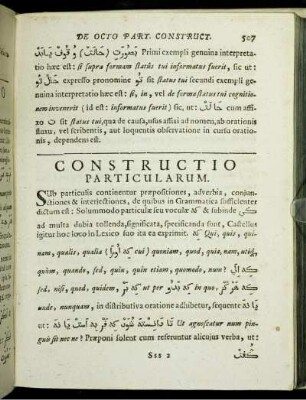 DE OCTO PART. CONSTRUCT. 507
Primi exempli genuina interpreta-
tio hæc est: si supra formam statûs tui informatus fuerit, sic ut:
expresso pronomine تو sit status tui secundi exempli ge-
nuina interpretatio hæc est: si, in, vel de forma status tui cognitio-
nem invenerit (id est: informatus fuerit) sic, ut: حالت cum affi-
xo ت sit status tui, qua de causa, usus affixi ad nomen, ab orationis
fluxu, vel scribentis, aut loquentis observatione in cursu oratio-
nis, dependens est.
CONSTRUCTIO
PARTICULARUM.
SUb particulis continentur præpositiones, adverbia, conjun-
ctiones & interjectiones, de quibus in Grammatica sufficienter
dictum est: Solummodo particulæ seu voculæ که & subinde کی
ad multa dubia tollenda, significata, specificanda sunt, Castellus
igitur hoc loco in Lexico suo ita ea caprimit. که Qui, quis, qui-
nam, qualis, qualis (که اورا cui) quoniam, quod, quia, nam, utiq;
quàm, quando, sed, quin, quin etiam, quomodo, num?
sed, nisi, quod, quidem ut per که in quo.
unde, nunquam, in distributiva oratione adhibetur, sequente یا نه
ut: تا دانسته شود که فربه است یا نه Ut agnoscatur num pin-
guis sit nec ne? Præponi solent cum referuntur alicujus verba, ut:
Sss 2 گفت